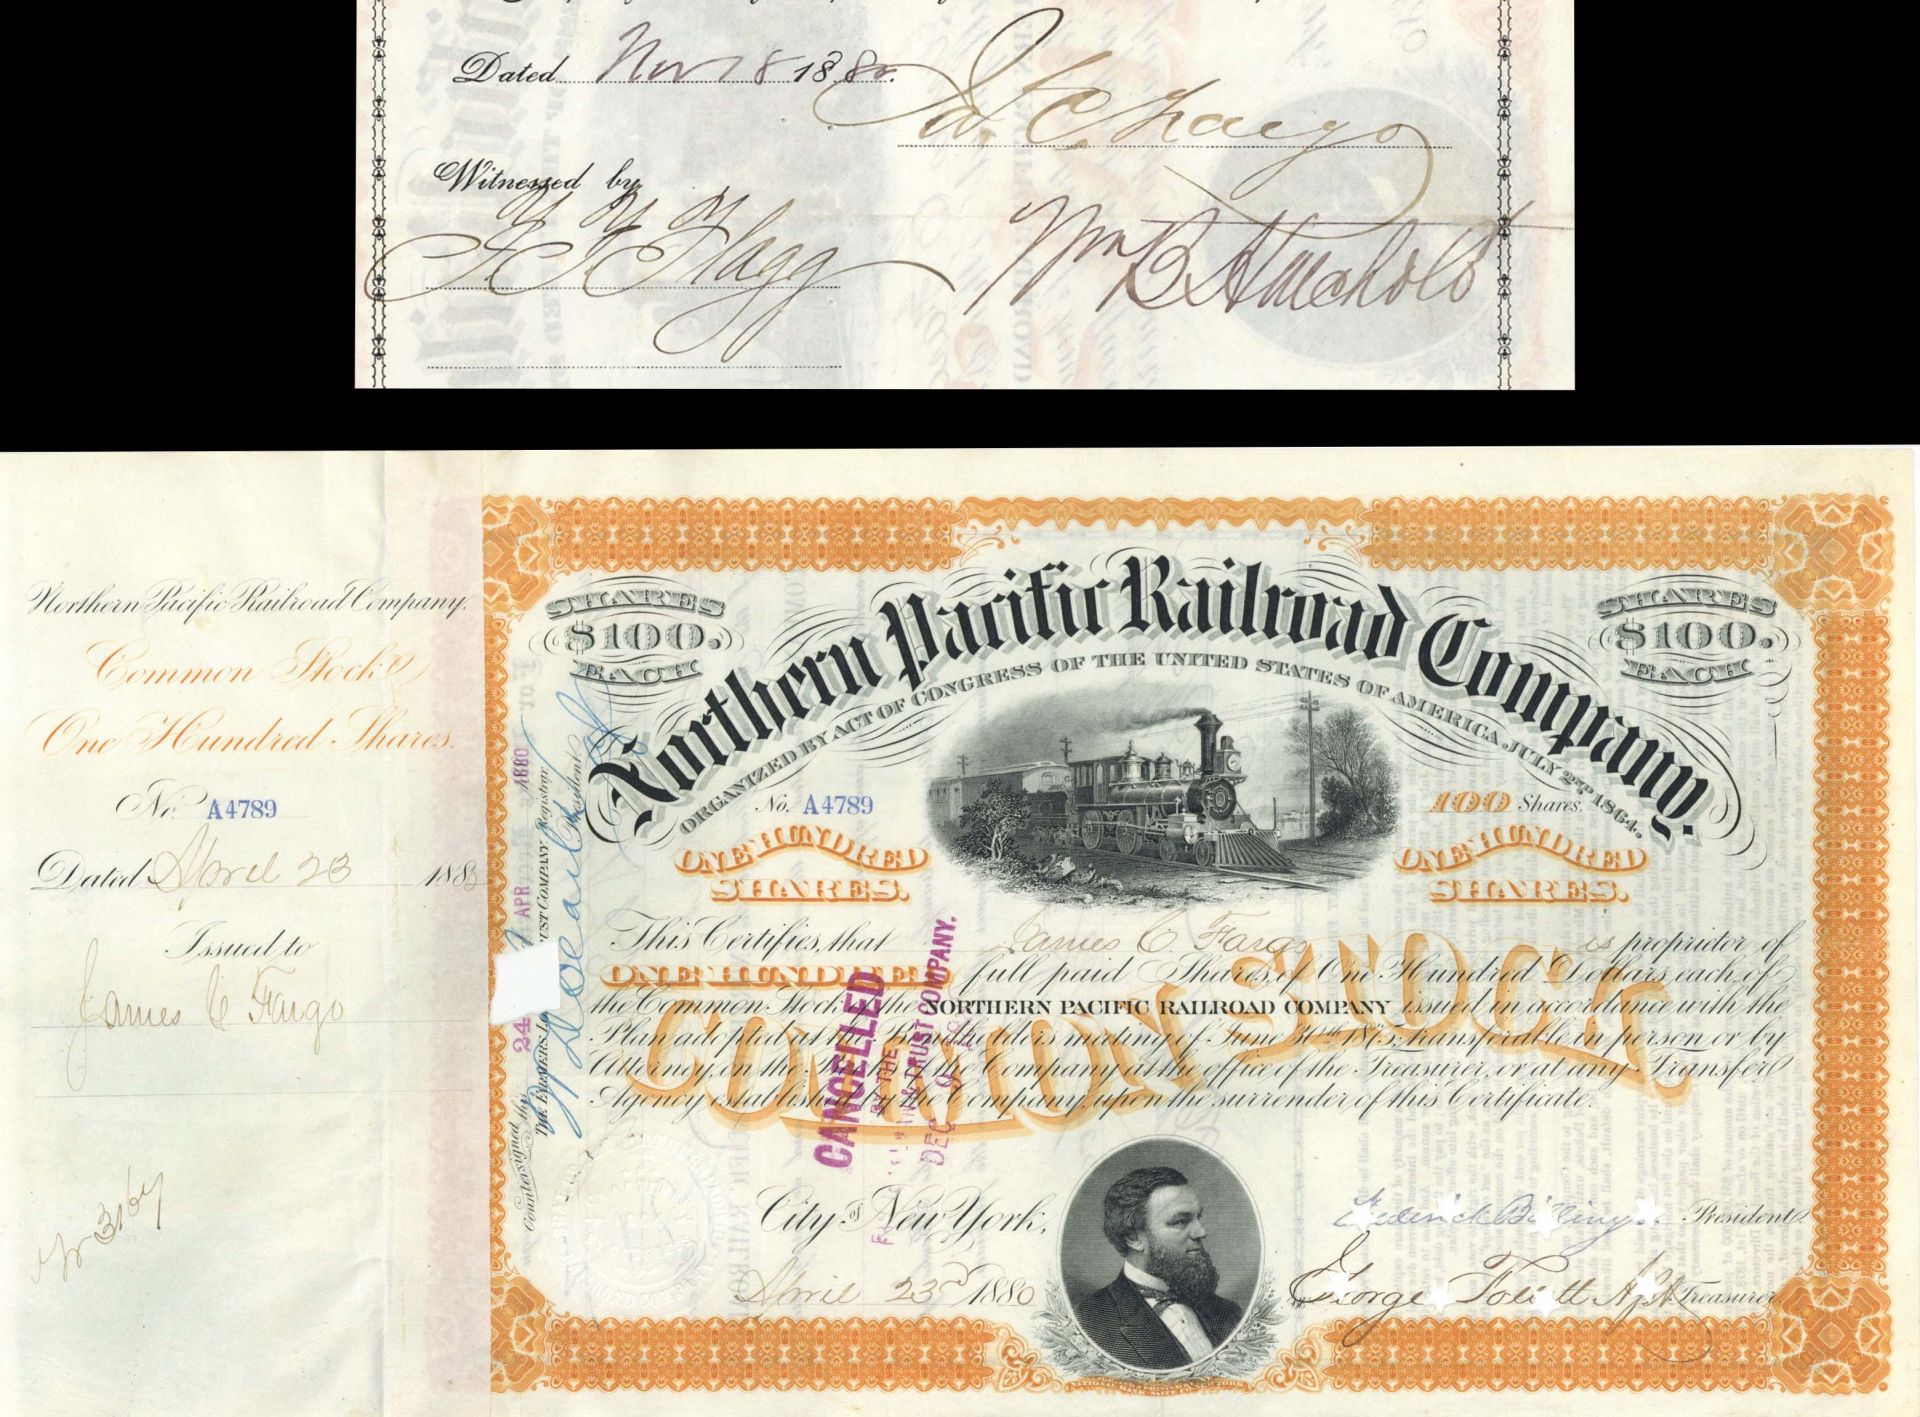 Dated Nov 18 1880.
J. C. Fargo
Witnessed by
Flagg
Wm B
Northern Pacific Railroad Company.
Common Stock
One Hundred Shares.
No. A4789
Dated April 23 188
Issued to
James C Fargo
SHARES $100. EACH
Northern Pacific Railroad Company.
SHARES $100. EACH
ORGANIZED BY ACT OF CONGRESS OF THE UNITED STATES OF AMERICA, JULY 2ND 1864.
No. A4789
100 Shares.
ONE HUNDRED SHARES.
ONE HUNDRED SHARES.
This Certifies, that James C. Fargo is proprietor of
ONE HUNDRED full paid Shares, of One Hundred Dollars each, of
the Common Stock of the NORTHERN PACIFIC RAILROAD COMPANY issued in accordance with the
Plan adopted at the Bondholders meeting of June 30th 1875, transferable in person or by
Attorney, on the Books of the Company at the office of the Treasurer, or at any Transfer
Agency established by the Company, upon the surrender of this Certificate.
COMMON STOCK
CANCELLED
BY THE
TRUST COMPANY.
DEC 9
City of New York,
April 23rd 1880
Frederick Billings President.
George Treasurer
Countersigned this
24 APR 1880
THE FARMERS TRUST COMPANY, Registrar.
President.